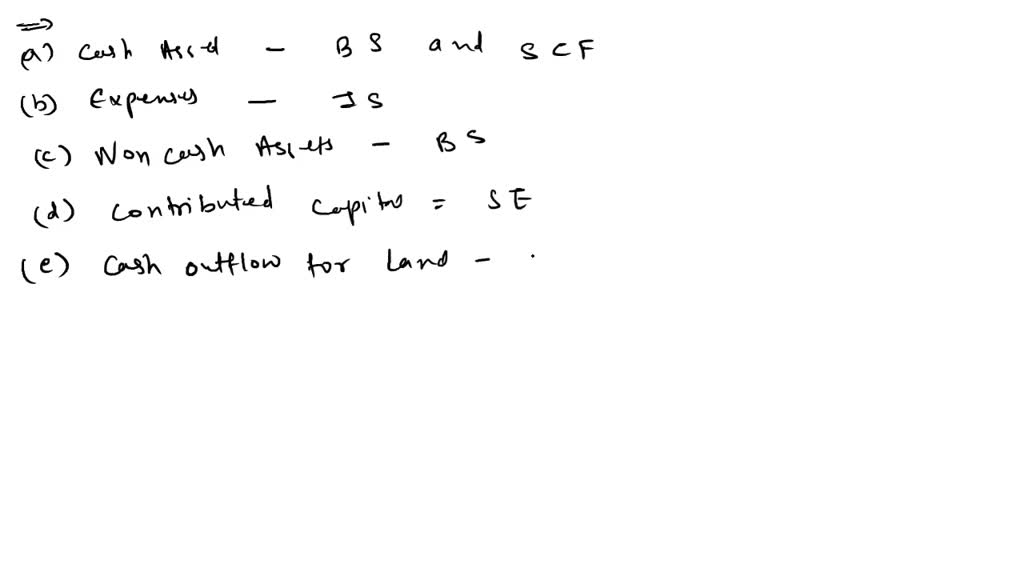 (a) Cash Asset - BS and SCF
(b) Expenses - IS
(c) Non cash Assets - BS
(d) Contributed Capital = SE
(e) Cash outflow for Land -